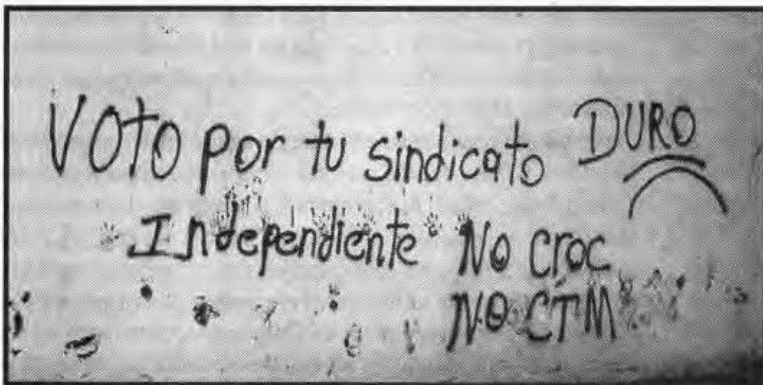 Voto por tu sindicato DURO
Independiente No Croc
NO CTM